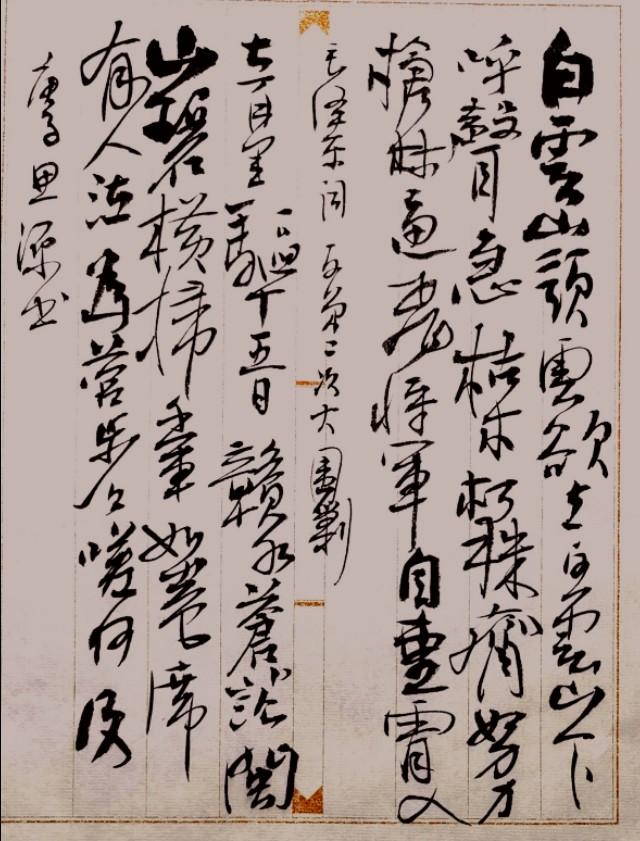 白雲山頭雲欲立白雲山下
呼聲急枯木朽株齊努力
槍林逼飛將軍自重霄入
毛泽东词 反第二次大圍剿
七百里驅十五日贛水蒼茫閩
山碧橫掃千軍如卷席
有人泣為營步步嗟何及
思源书